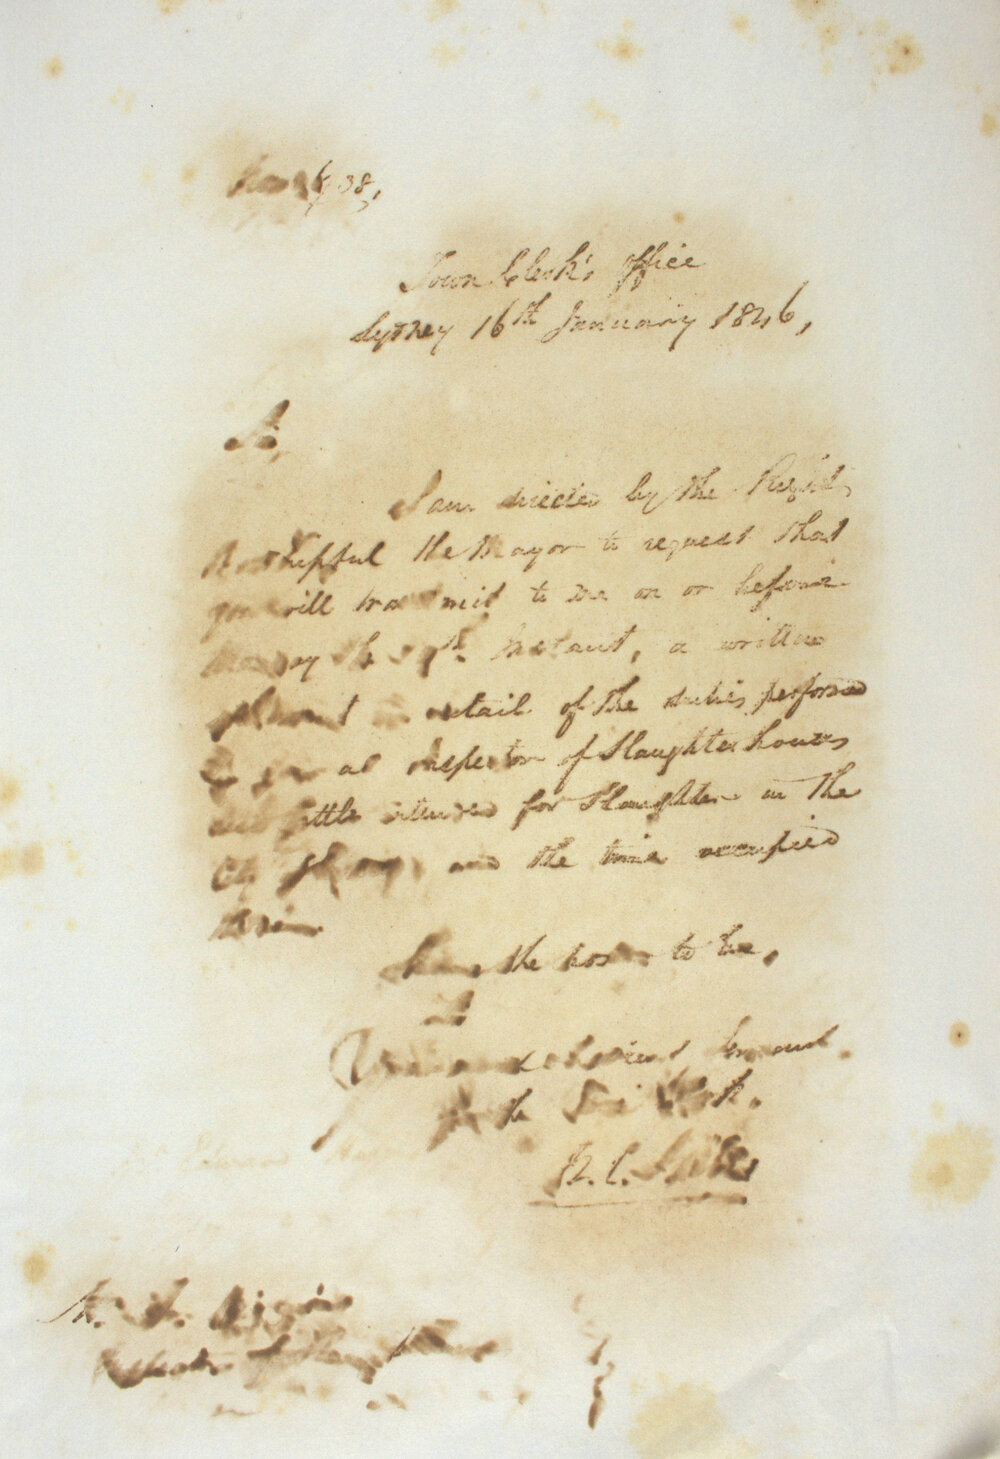 38,
Town Clerk's Office
Sydney 16th January 1846,
Sir,
I am directed by the Right
Worshipful the Mayor to request that
you will transmit to me on or before
Monday the Instant, a written
in detail of the duties performed
by you as Inspector of Slaughter houses
and Cattle intended for Slaughter in the
City and the time occupied
therein
I have the honor to be,
Sir
Your most obedient Servant
for the Town Clerk.
Mr.
Inspector of Slaughter Houses